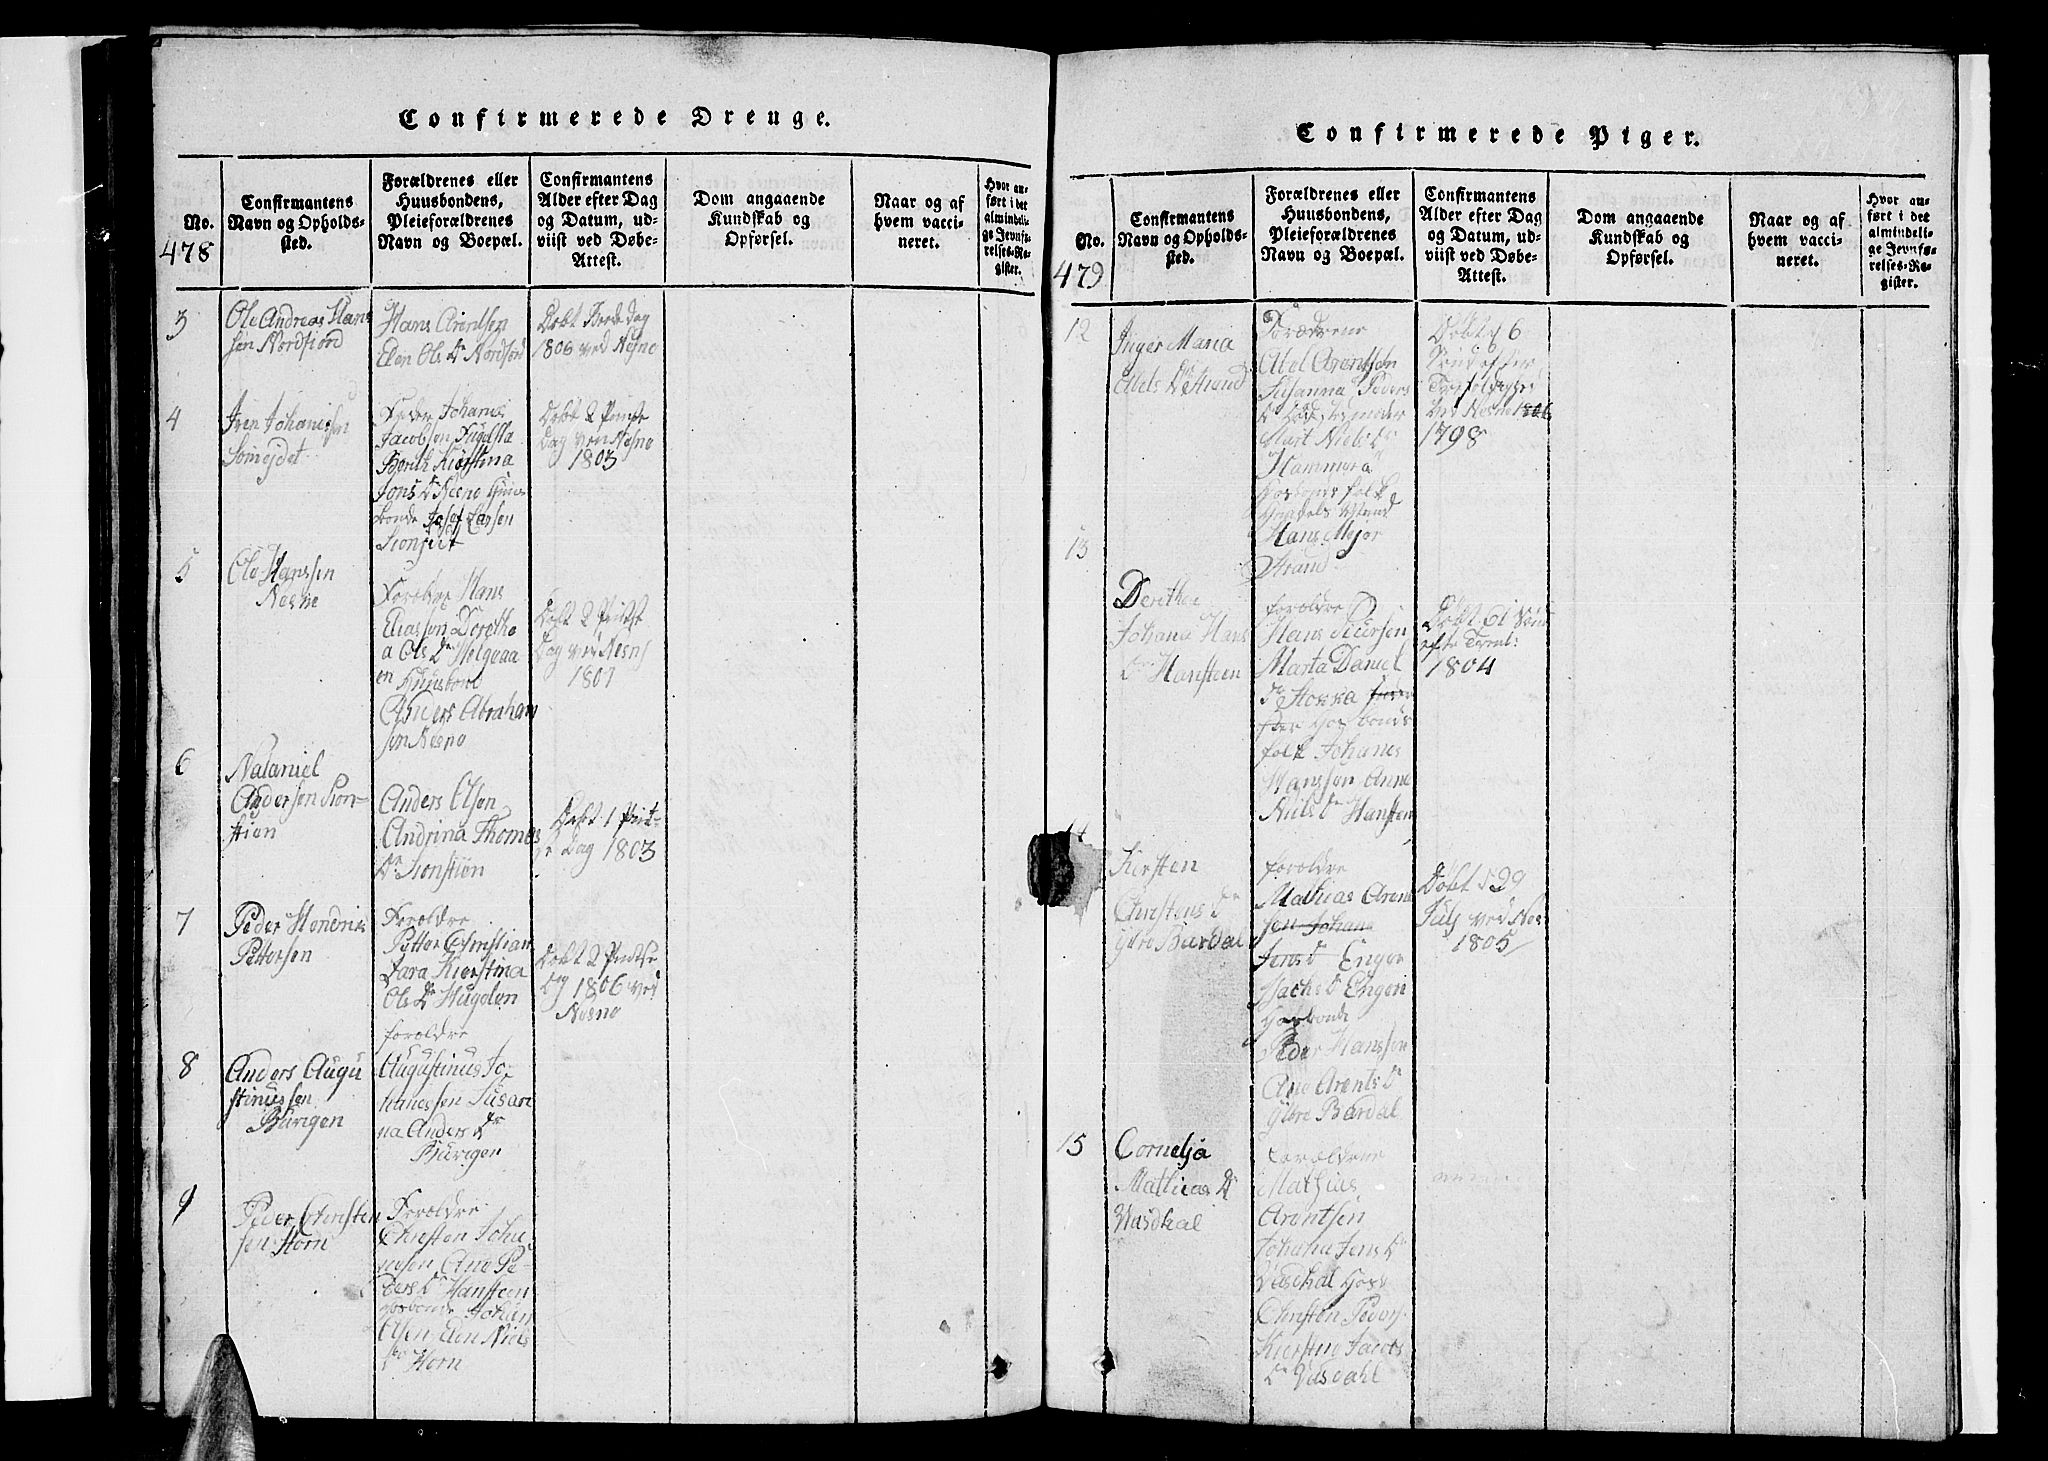 Confirmerede Drenge.
No.
478
Confirmantens
Navn og Opholds-
sted.
Forældrenes eller
Huusbondens,
Pleieforældrenes
Navn og Boepæl.
Confirmantens
Alder efter Dag
og Datum, ud-
viist ved Døbe-
Attest.
Dom angaaende
Kundskab og
Opførsel.
Naar og af
hvem vacci-
neret.
Hvor an-
ført i det
almindeli-
ge Jevnfø-
relses-Re-
gister.
3
Ole Andreas Hans
sen Nordfiord
Hans Arentsen
Elen Ols Dr Nordfiord
Døbt
1806 ved Nesne
4
Iver Johanessen
Johanes
Jacobsen
Berith Kierstina
Jons Dr Nesne Huus
bonde Josef Larsen
Døbt 2 Pintse
Dag ved Nesne
1803
5
Ole Hanssen
Nesne
Foreldre Hans
Eliassen Dorethe
a Ols Dr Helgaaa
en Huusbond
Anders Abraham
sen Nesne
Døbt 2 Pintse
Dag ved Nesne
1801
6
Nataniel
Andersen Sion-
stien
Anders Olsen
Andrina Thomes
Dr Sionstien
Døbt 1 Pint-
se Dag 1803
7
Peder Hendrik
Pettersen
Foreldre
Petter Christian
Sara Kierstina
Ols Dr Hugelen
Døbt 2 Pintse
Dag 1806 ved
Nesne
8
Anders Augu
stinussen
Burigen
foreldre
Augustinus Jo-
hanessen Susan
na Anders Dr
Burigen
9
Peder Christen
sen Horn
Foreldre
Christen Joha
nesen Ane Pe-
ders Dr Hansteen
Hosbonde Johan
Olsen Elen Niels
Dr Horn
Confirmerede Piger.
No.
479
Confirmantens
Navn og Opholds-
sted.
Forældrenes eller
Huusbondens,
Pleieforældrenes
Navn og Boepæl.
Confirmantens
Alder efter Dag
og Datum, ud-
viist ved Døbe-
Attest.
Dom angaaende
Kundskab og
Opførsel.
Naar og af
hvem vacci-
neret.
Hvor an-
ført i det
almindeli-
ge Jevnfø-
relses-Re-
gister.
12
Inger Maria
Abels Dr Strand
Forældrene
Abel Arentsen
Susanna Peders
Dr
Mart Niels Dr
Hammera
Hosbonds folk
Hans Mejer
Strand
Døbt d 6
Send efter
ved Nesne 1806
1798
13
Derithe
Johana Hans
Dr Hansteen
foreldre
Hans Siursen
Marta Daniel
Dr Stokka
Hosbonds
folk Johanes
Hanssen Anne
Niels Dr Hansten
Døbt 6 Sønd
efte Tremt:
1804
14
Kiersten
Christens Dr
Ytre Bardal
foreldre
Mathias Arent
sen Johana
Jens Dr Enger
Isachs Dr Engen
Hosbonde
Peder Hanssen
Ane Arents Dr
Ytre Bardal
Døbt d 29
Juls ved Nes
1805
15
Cornelja
Mathias Dr
Vasdhal
Forældrene
Mathius
Arentsen
Johana Jens Dr
Vasdhal Hosb
Christen Peders
Kierstine Jacobs
Dr Vasdahl